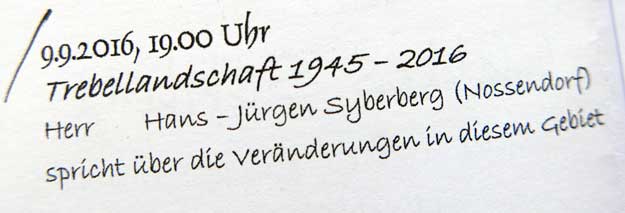 9.9.2016, 19.00 Uhr
Trebellandschaft 1945 - 2016
Herr Hans - Jürgen Syberberg (Nossendorf)
spricht über die Veränderungen in diesem Gebiet